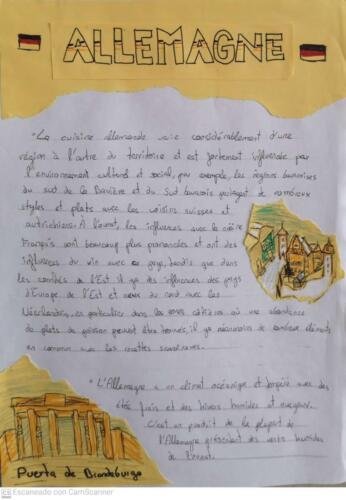 ALLEMAGNE
"La cuisine allemande varie considérablement d'une
région à l'autre du territoire et est fortement influencée par
l'environnement culturel et social, par exemple les régions bavaroises
du sud de la Bavière et du Sud bavarois partagent de nombreux
styles et plats avec les voisins suisses et
autrichiens. A l'ouest, les influences avec la
Français sont beaucoup plus prononcées et ont des
influences du vin avec ce pays, tandis que dans
les de l'Est il ya des influences des pays
d'Europe de l'Est et au nord avec les
Néerlandais, en particulier dans les côtières où une abondance
de plats de poisson peuvent être trouvés, il ya néanmoins de nombreux éléments
en commun avec les recettes scandinaves.
"L'Allemagne a un climat océanique et tempéré avec des
étés frais et des hivers humides et nuageux.
C'est un produit de la plupart de
l'Allemagne des vents humides
de l'ouest.
Puerta de Brandeburgo
CS Escaneado con CamScanner